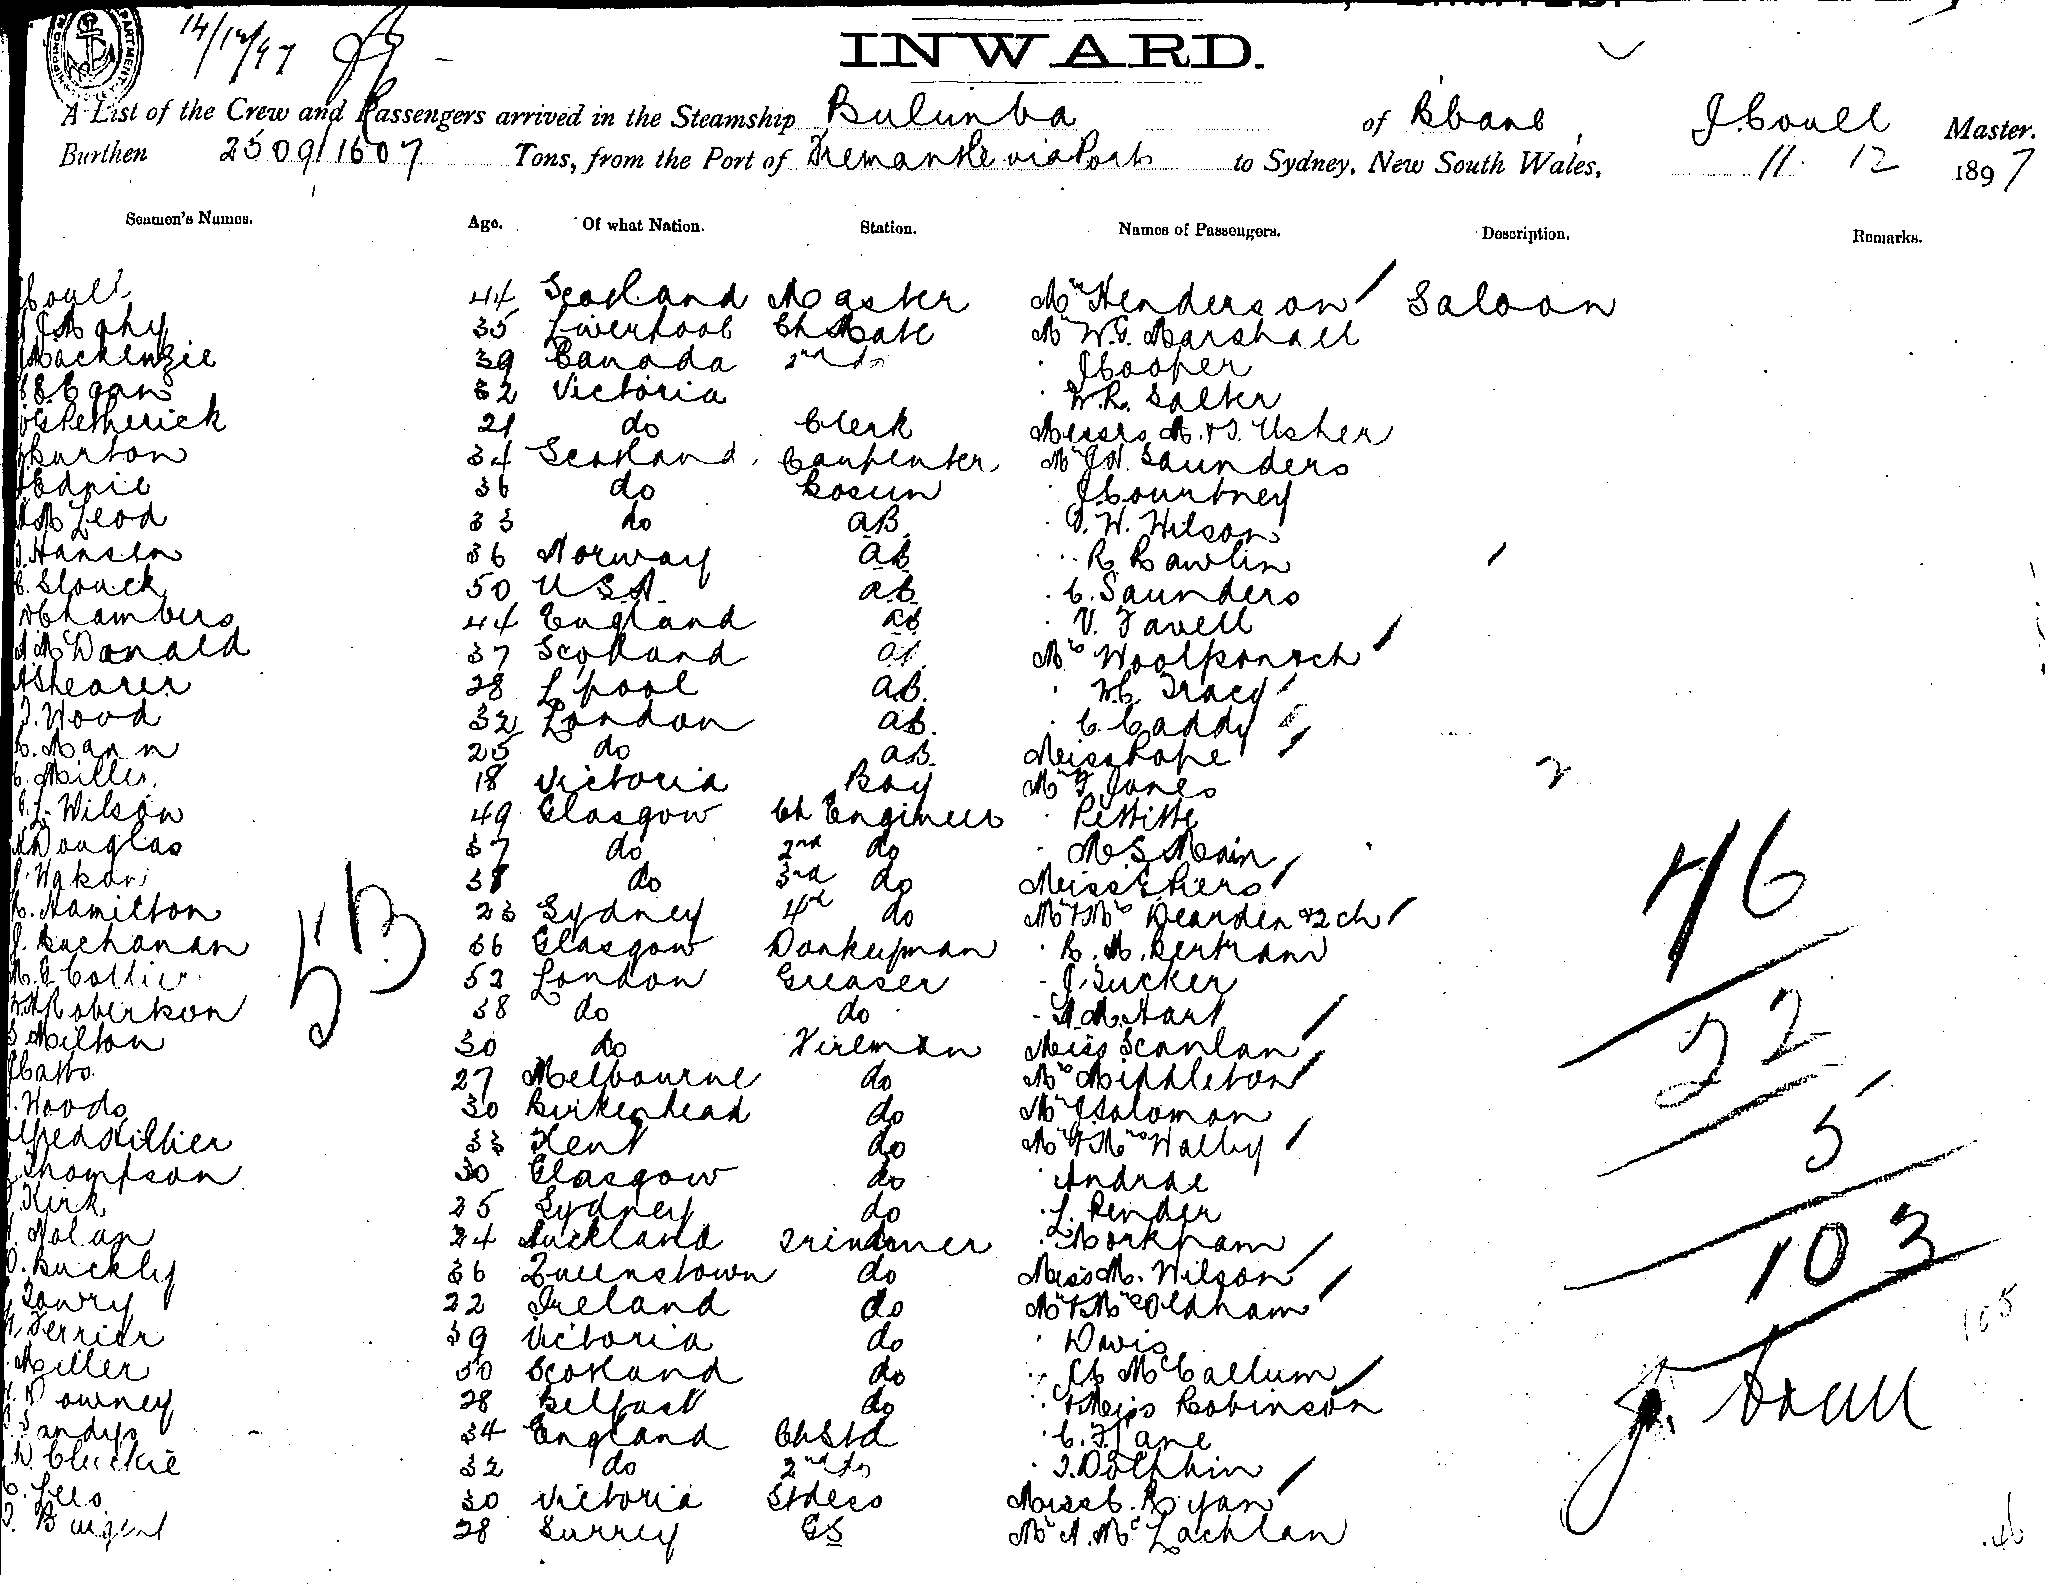 14/12/97
INWARD.
A List of the Crew and Passengers arrived in the Steamship Bulimba of Bbane, J. Coull Master.
Burthen 2509/1607 Tons, from the Port of Fremantle via Ports to Sydney, New South Wales, 11. 12 1897
Seamen's Names. Age. Of what Nation. Station. Names of Passengers. Description. Remarks.
Coull 44 Scotland Master Mrs Henderson Saloon
35 Liverpool Ch Mate Mr W.G. Marshall
Mackenzie 39 Canada 2nd do J Cooper
Egan 32 Victoria W.R. Salter
Petherick 21 do Clerk Messrs M. & J. Usher
Burton 34 Scotland Carpenter Mr J.W. Saunders
36 do Bosun J Courtney
McLeod 33 do AB. J. W. Wilson
J. Hansen 36 Norway AB R Rawlin
C. Slouck 50 U.S.A. AB C. Saunders
Chambers 44 England AB V. Favell
McDonald 37 Scotland AB Mrs
A Shearer 28 L'pool AB. W.C. Tracy
J. Wood 32 London AB. C. Caddy
C. Mann 25 do AB. Miss Pope
C. Miller 18 Victoria Boy Mr F Jones
L. Wilson 49 Glasgow Ch Engineer
Douglas 37 do 2nd do M S Main
38 do 3rd do Miss
Hamilton 23 Sydney 4th do Mr & Mrs Dearden & 2 ch
J. Buchanan 36 Glasgow Donkeyman R. M. Bertram
Collier 52 London Greaser J. Tucker
Roberson 38 do do A. M. Hart
S Milton 30 do Fireman Miss Scanlan
27 Melbourne do Mrs Middleton
Woods 30 Birkenhead do Mr J Solomon
33 Kent do Mr & Mrs Walby
Thompson 30 Glasgow do Andrae
Kirk 25 Sydney do L. Pender
Nolan 24 Auckland Trimmer Markham
Buckley 36 Queenstown do Miss M. Wilson
Lowry 22 Ireland do Mr & Mrs Oldham
Ferrier 39 Victoria do Davis
Miller 30 Scotland do McCallum
Downey 28 Belfast do & Miss Robinson
Sandys 34 England Ch Std C. F. Lane
32 do 2nd do J. Dolphin
C. Lees 30 Victoria Stdess Miss C. Ryan
28 Surrey GS Mr A. McLachlan
53
46
22
5
103
105
46